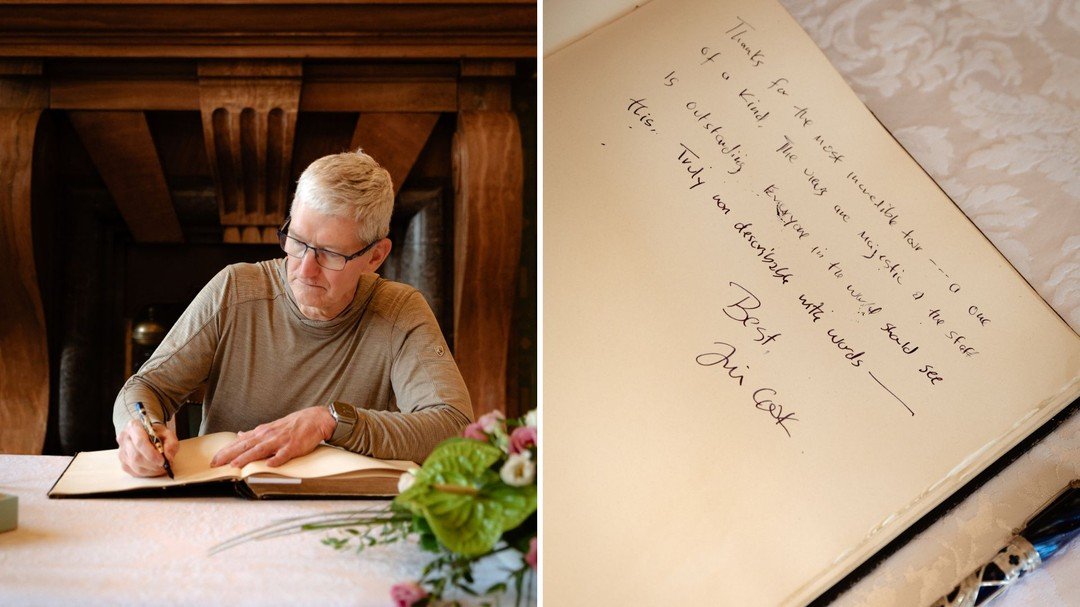 Thanks for the most incredible tour --- a one
of a kind. The views are majestic & the staff
is outstanding. Everyone in the world should see
this. Truly non describable with words —
Best,
Tim Cook